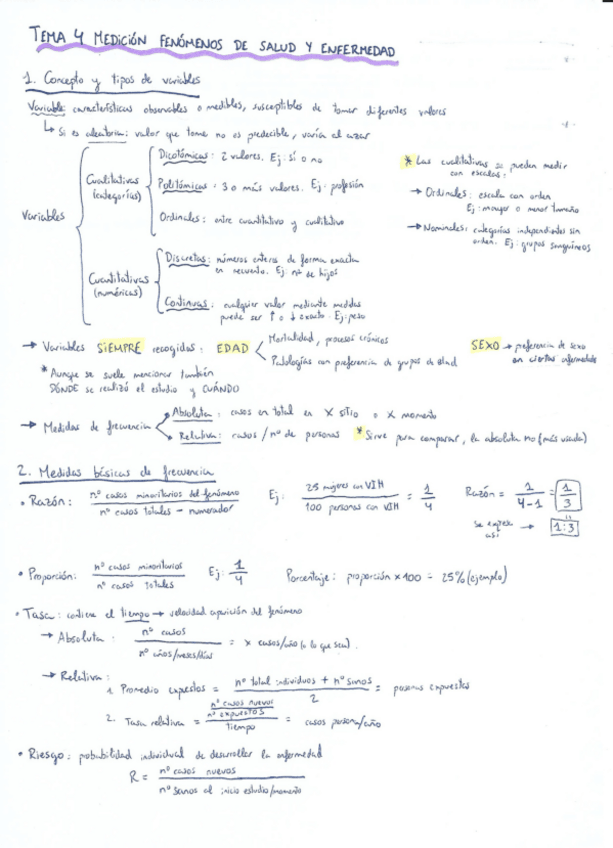 TEMA 4 MEDICIÓN FENÓMENOS DE SALUD Y ENFERMEDAD
1. Concepto y tipos de variables
Variable: características observables o medibles, susceptibles de tomar diferentes valores
↳ Si es aleatoria: valor que tome no es predecible, varía al azar
Variables
Cualitativas (categorías)
Dicotómicas: 2 valores. Ej: sí o no
Politómicas: 3 o más valores. Ej: profesión
Ordinales: entre cuantitativo y cualitativo
Cuantitativas (numéricas)
Discretas: números enteros de forma exacta
en recuento. Ej: nº de hijos
Continuas: cualquier valor mediante medidas
puede ser ↑ o ↓ exacto. Ej: peso
* Las cualitativas se pueden medir
con escalas:
→ Ordinales: escala con orden
Ej: mayor o menor tamaño
→ Nominales: categorías independientes sin
orden. Ej: grupos sanguíneos
→ Variables SIEMPRE recogidas: EDAD
Mortalidad, procesos crónicos
Patologías con preferencia de grupos de edad
SEXO → preferencia de sexo
en ciertas enfermedades
* Aunque se suele mencionar también
DÓNDE se realizó el estudio y CUÁNDO
→ Medidas de frecuencia
Absoluta: casos en total en X sitio o X momento
Relativa: casos / nº de personas * Sirve para comparar, la absoluta no (más usada)
2. Medidas básicas de frecuencia
• Razón: nº casos minoritarios del fenómeno
nº casos totales - numerador
Ej: 25 mujeres con VIH
100 personas con VIH
= 1/4
Razón = 1/4-1 = 1/3
Se expresa así → 1:3
• Proporción: nº casos minoritarios
nº casos totales
Ej: 1/4
Porcentaje: proporción x 100 = 25% (ejemplo)
• Tasa: contiene el tiempo → velocidad aparición del fenómeno
→ Absoluta: nº casos
nº años/meses/días
= x casos/año (o lo que sea).
→ Relativa:
1. Promedio expuestos = nº total individuos + nº sanos
2
= personas expuestas
2. Tasa relativa = nº casos nuevos
nº expuestos
tiempo
= casos persona/año
• Riesgo: probabilidad individual de desarrollar la enfermedad
R = nº casos nuevos
nº sanos al inicio estudio/momento